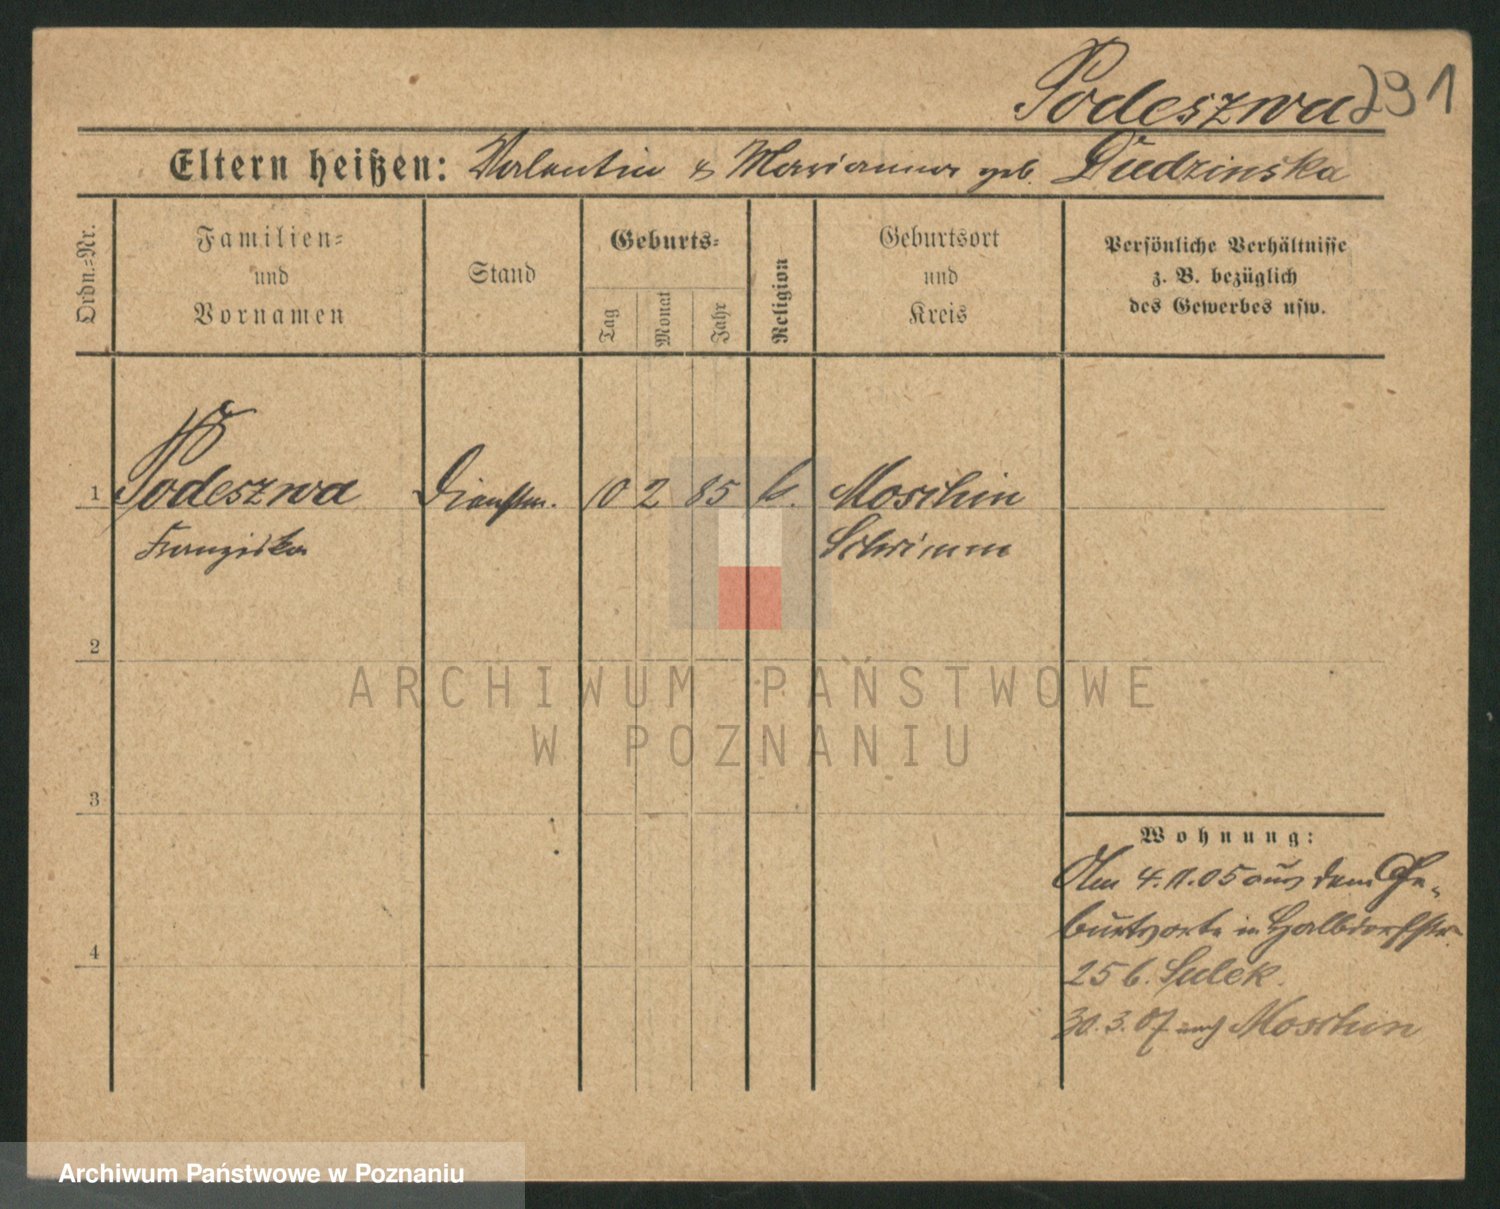 Podeszwa 291
Eltern heißen: Valentin & Marianna geb. Dudzinska
Ordn.-Nr.
Familien-
und
Vornamen
Stand
Geburts-
Tag
Monat
Jahr
Religion
Geburtsort
und
Kreis
Persönliche Verhältnisse
z. B. bezüglich
des Gewerbes usw.
1 Podeszwa Dienstm. 10 2 85 k. Moschin
Franziska Schrimm
2
3
4
Wohnung:
Am 4.11.05 aus dem Ge-
burtsorte in Halbdorfstr.
25 b. Sulek.
30.3.07 nach Moschin
ARCHIWUM PAŃSTWOWE
W POZNANIU
Archiwum Państwowe w Poznaniu